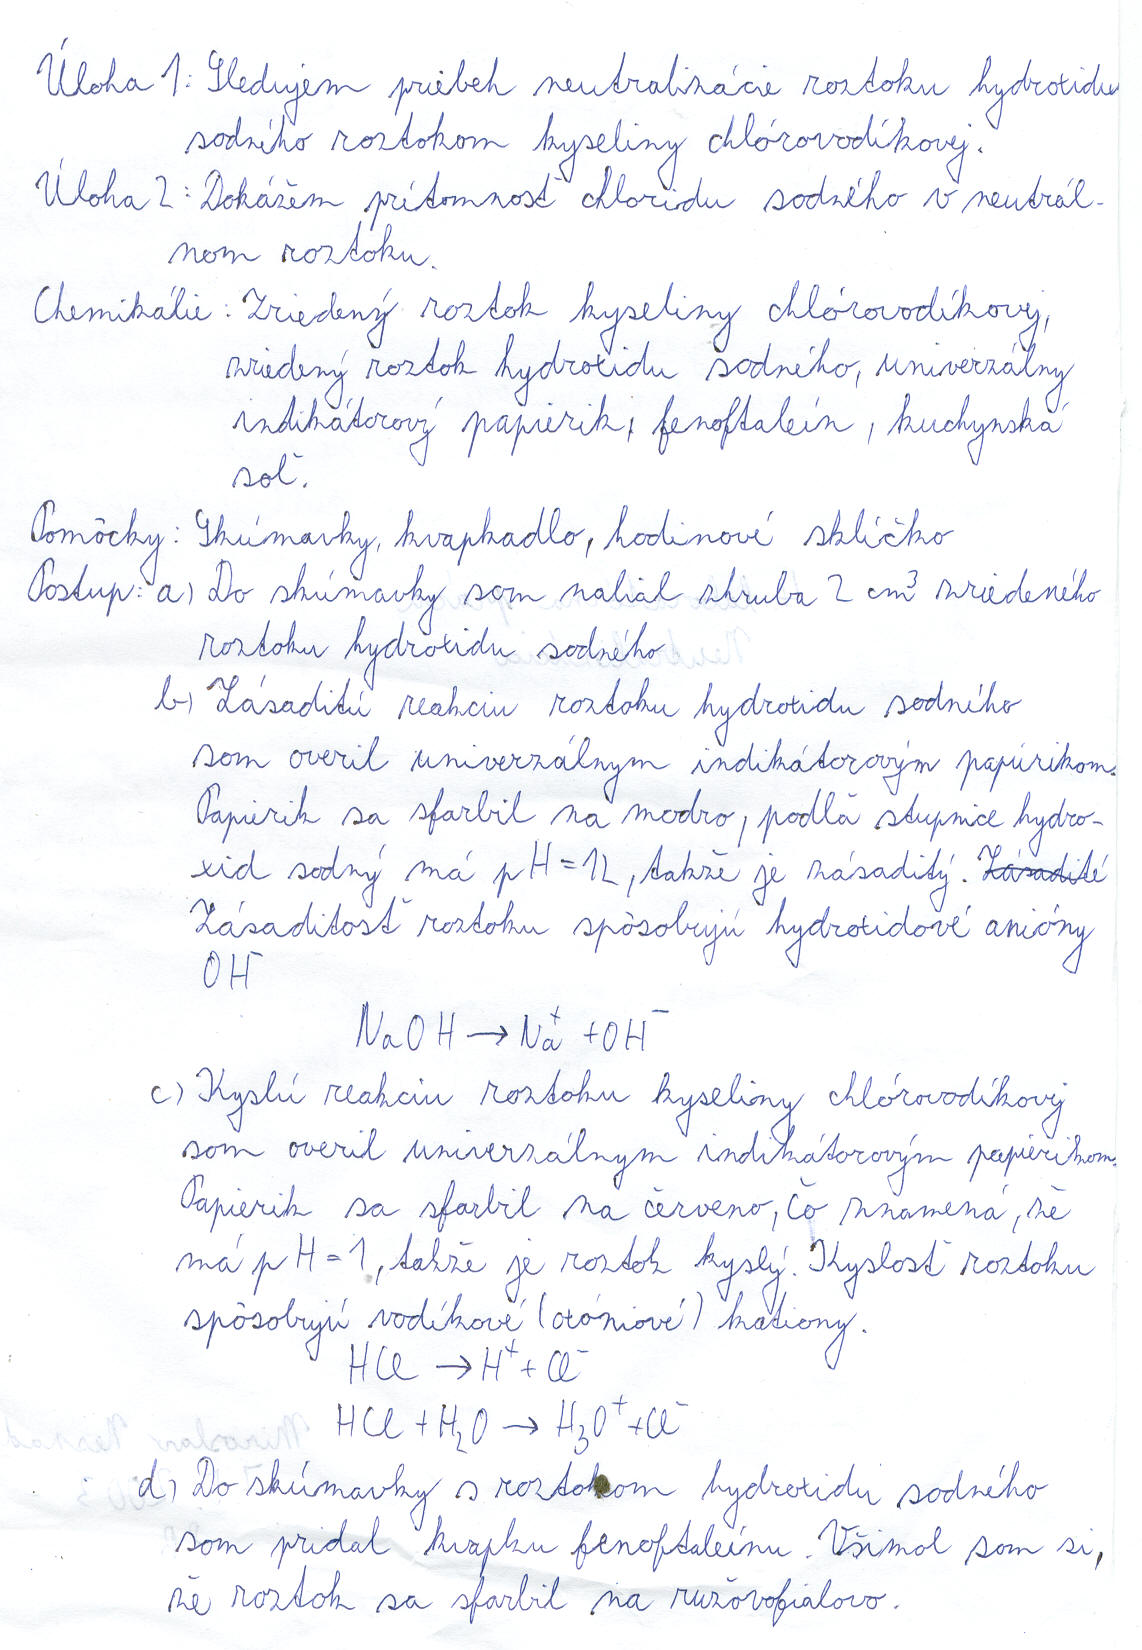 Úloha 1: Sledujem priebeh neutralizácie roztoku hydroxidu
sodného roztokom kyseliny chlórovodíkovej.
Úloha 2: Dokážem prítomnosť chloridu sodného v neutrál-
nom roztoku.
Chemikálie: Zriedený roztok kyseliny chlórovodíkovej,
zriedený roztok hydroxidu sodného, univerzálny
indikátorový papierik, fenoftaleín, kuchynská
soľ.
Pomôcky: Skúmavky, kvapkadlo, hodinové sklíčko
Postup: a) Do skúmavky som nalial zhruba 2 cm³ zriedeného
roztoku hydroxidu sodného
b) Zásaditú reakciu roztoku hydroxidu sodného
som overil univerzálnym indikátorovým papierikom.
Papierik sa sfarbil na modro, podľa stupnice hydro-
xid sodný má pH = 12, takže je zásaditý. Zásadité
Zásaditosť roztoku spôsobujú hydroxidové anióny
OH⁻
NaOH → Na⁺ + OH⁻
c) Kyslú reakciu roztoku kyseliny chlórovodíkovej
som overil univerzálnym indikátorovým papierikom.
Papierik sa sfarbil na červeno, čo znamená, že
má pH = 1, takže je roztok kyslý. Kyslosť roztoku
spôsobujú vodíkové (oxóniové) kationy.
HCl → H⁺ + Cl⁻
HCl + H₂O → H₃O⁺ + Cl⁻
d) Do skúmavky s roztokom hydroxidu sodného
som pridal kvapku fenoftaleínu. Všimol som si,
že roztok sa sfarbil na ružovofialovo.